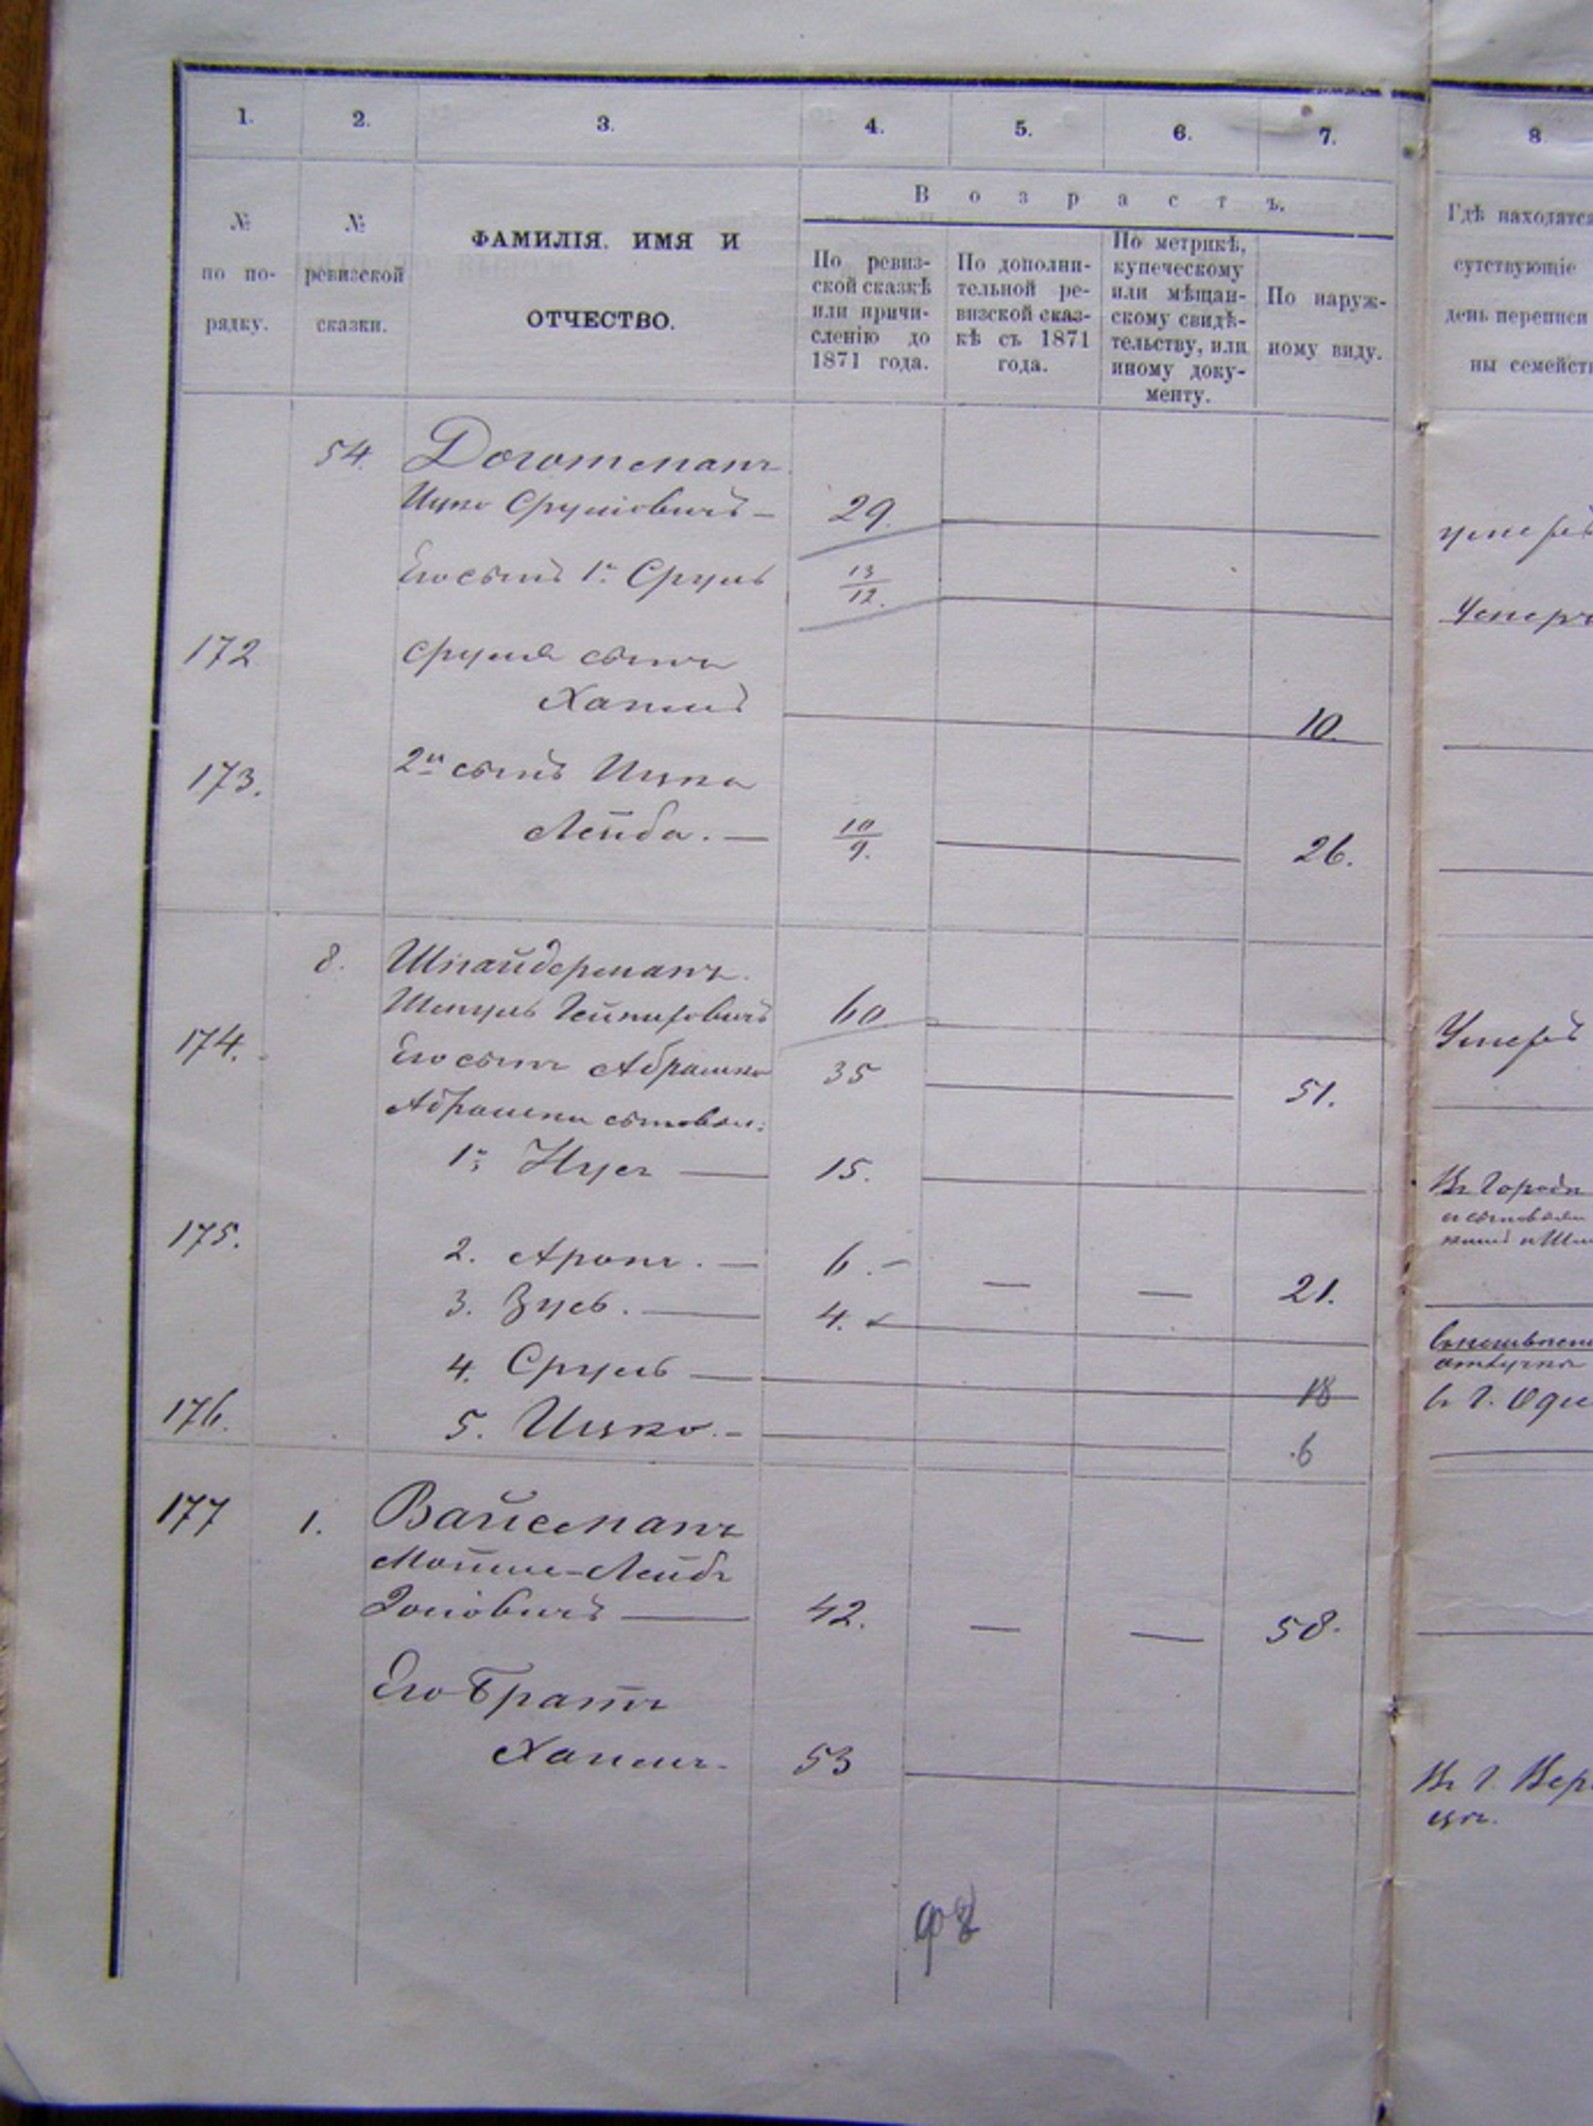 1. 2. 3. 4. 5. 6. 7. 8
В о з р а с т ъ.
№ по по-рядку.
№ ревизской сказки.
ФАМИЛІЯ, ИМЯ И
ОТЧЕСТВО.
По ревиз-
ской сказкѣ
или причи-
сленію до
1871 года.
По дополни-
тельной ре-
визской сказ-
кѣ съ 1871
года.
По метрикѣ,
купеческому
или мѣщан-
скому свидѣ-
тельству, или
иному доку-
менту.
По наруж-
ному виду.
Гдѣ находятся
сутствующіе
день переписи
ны семейств
54. Доготманъ
Ицко Сруліовичъ — 29. умеръ
Его сынъ 1й Сруль 13/12. Умеръ
172 Сруля сынъ
Хаимъ 10.
173. 2й сынъ Ицка
Лейба. — 10/9. 26.
8. Шнайдерманъ.
Шмуль 60 Умеръ
174. Его сынъ Абрамко 35 51.
Абрамки сыновья:
1й Нусъ — 15. Въ Город
и сыновьям
175. 2. Аронъ. — 6. — — — 21.
3. Зусь. — 4.
4. Сруль — 18 въ г. Одес
176. 5. Ицко. — 6
177 1. Вайсманъ
Мошко-Лейбъ
42. — — 58.
Его Братъ
Хаимъ. 53 Въ г. Бер
цы.